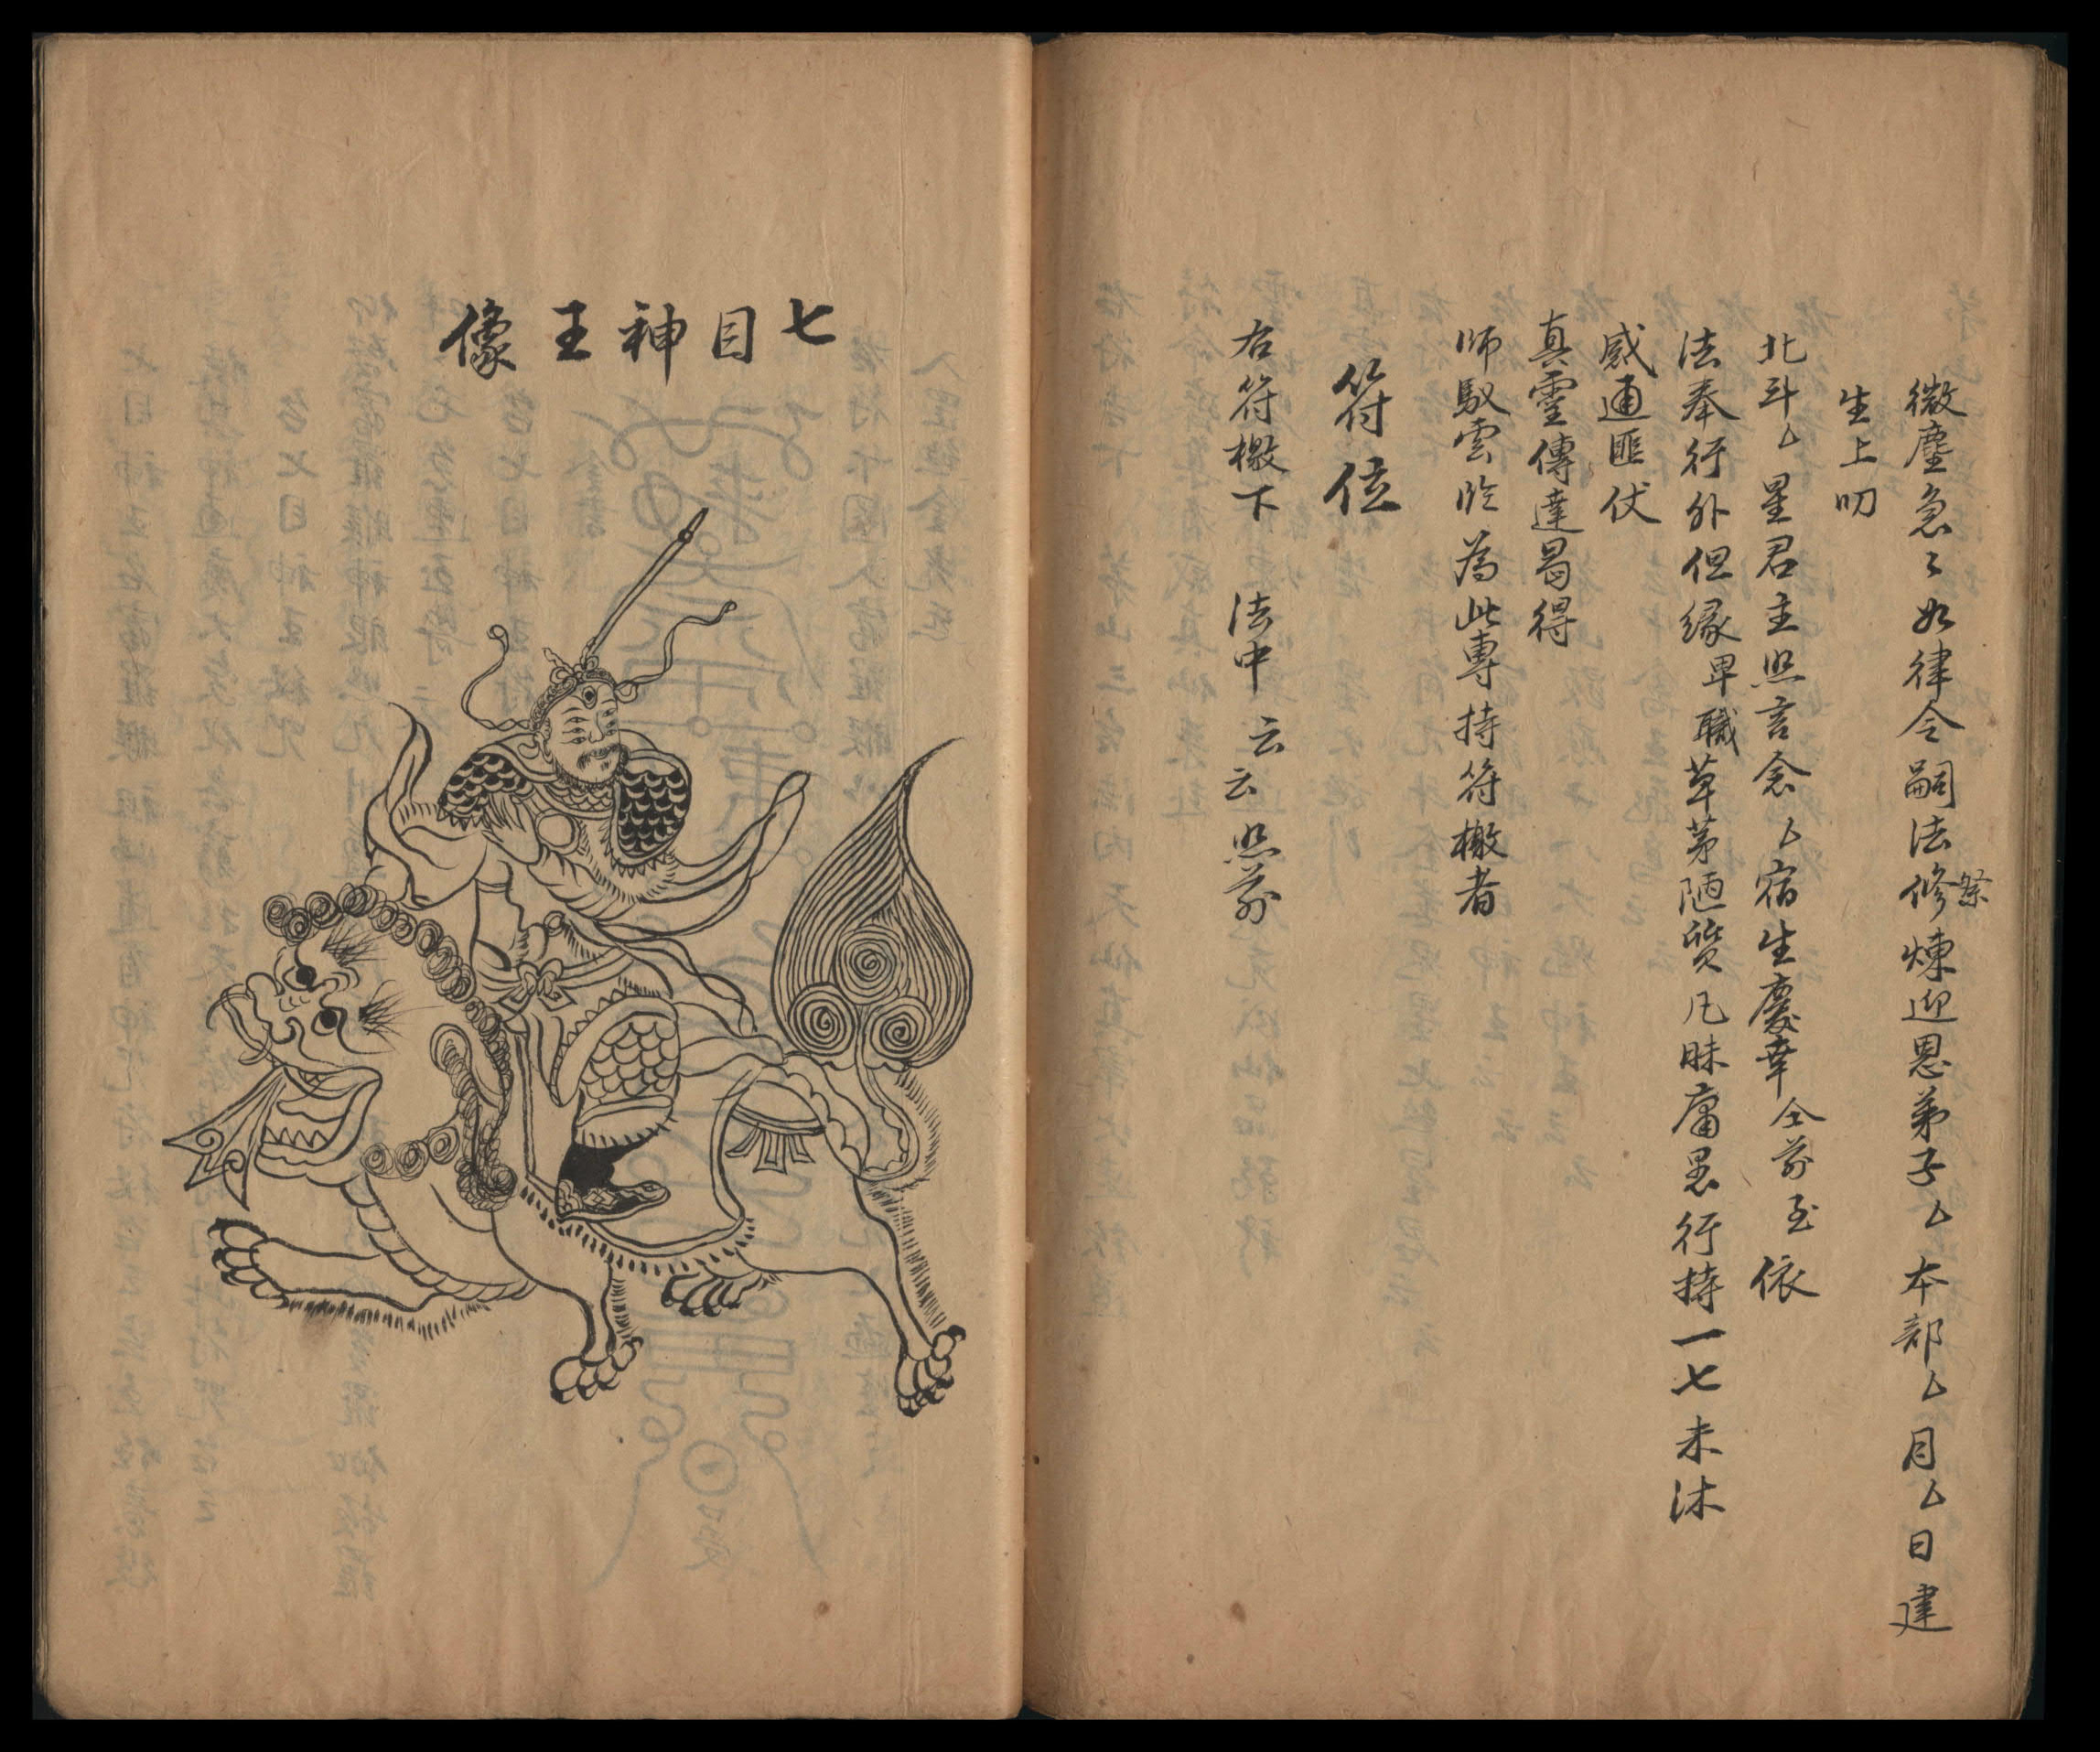 微塵急々如律令嗣法修煉迎恩弟子厶本部厶月厶日建
祭
生上叨
北斗厶星君主照言念厶宿生慶幸仝前至依
法奉行外但緣卑職草茅陋質凡昧庸愚行持一七未沐
感通匪伏
真靈傳達曷得
師馭雲臨為此專持符檄者
符位
右符檄下 法中 云云 照前
七目神王像